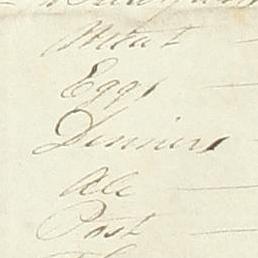 Meat
Eggs
Dinners
Ale
Post